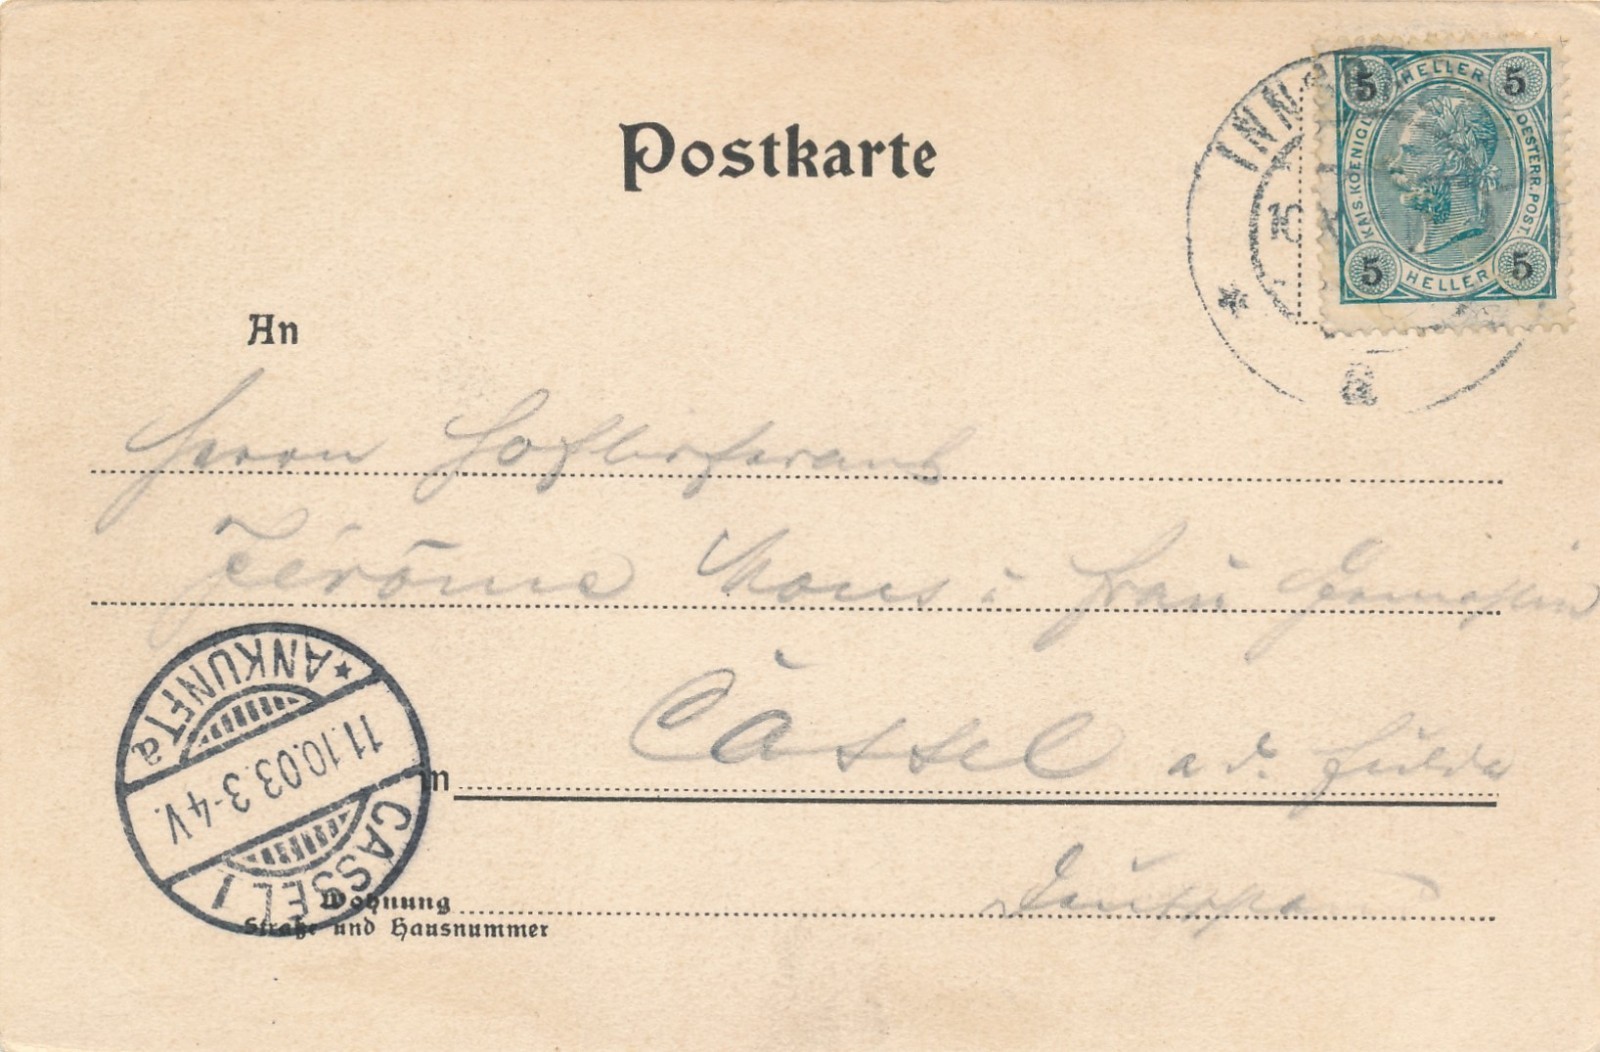 Postkarte
5 HELLER 5
KAIS. KOENIGL. OESTERR. POST.
5 HELLER 5
INNSB
10
a
An
Herrn Hoflieferant
Jérôme Mons
Frau Gemahlin
in Cassel a d. Fulda
ANKUNFT a
11.10.03. 3-4 V.
CASSEL 1
Wohnung
Straße und Hausnummer